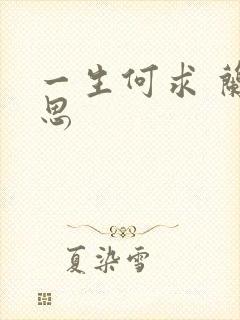 一生何求
思
夏染雪